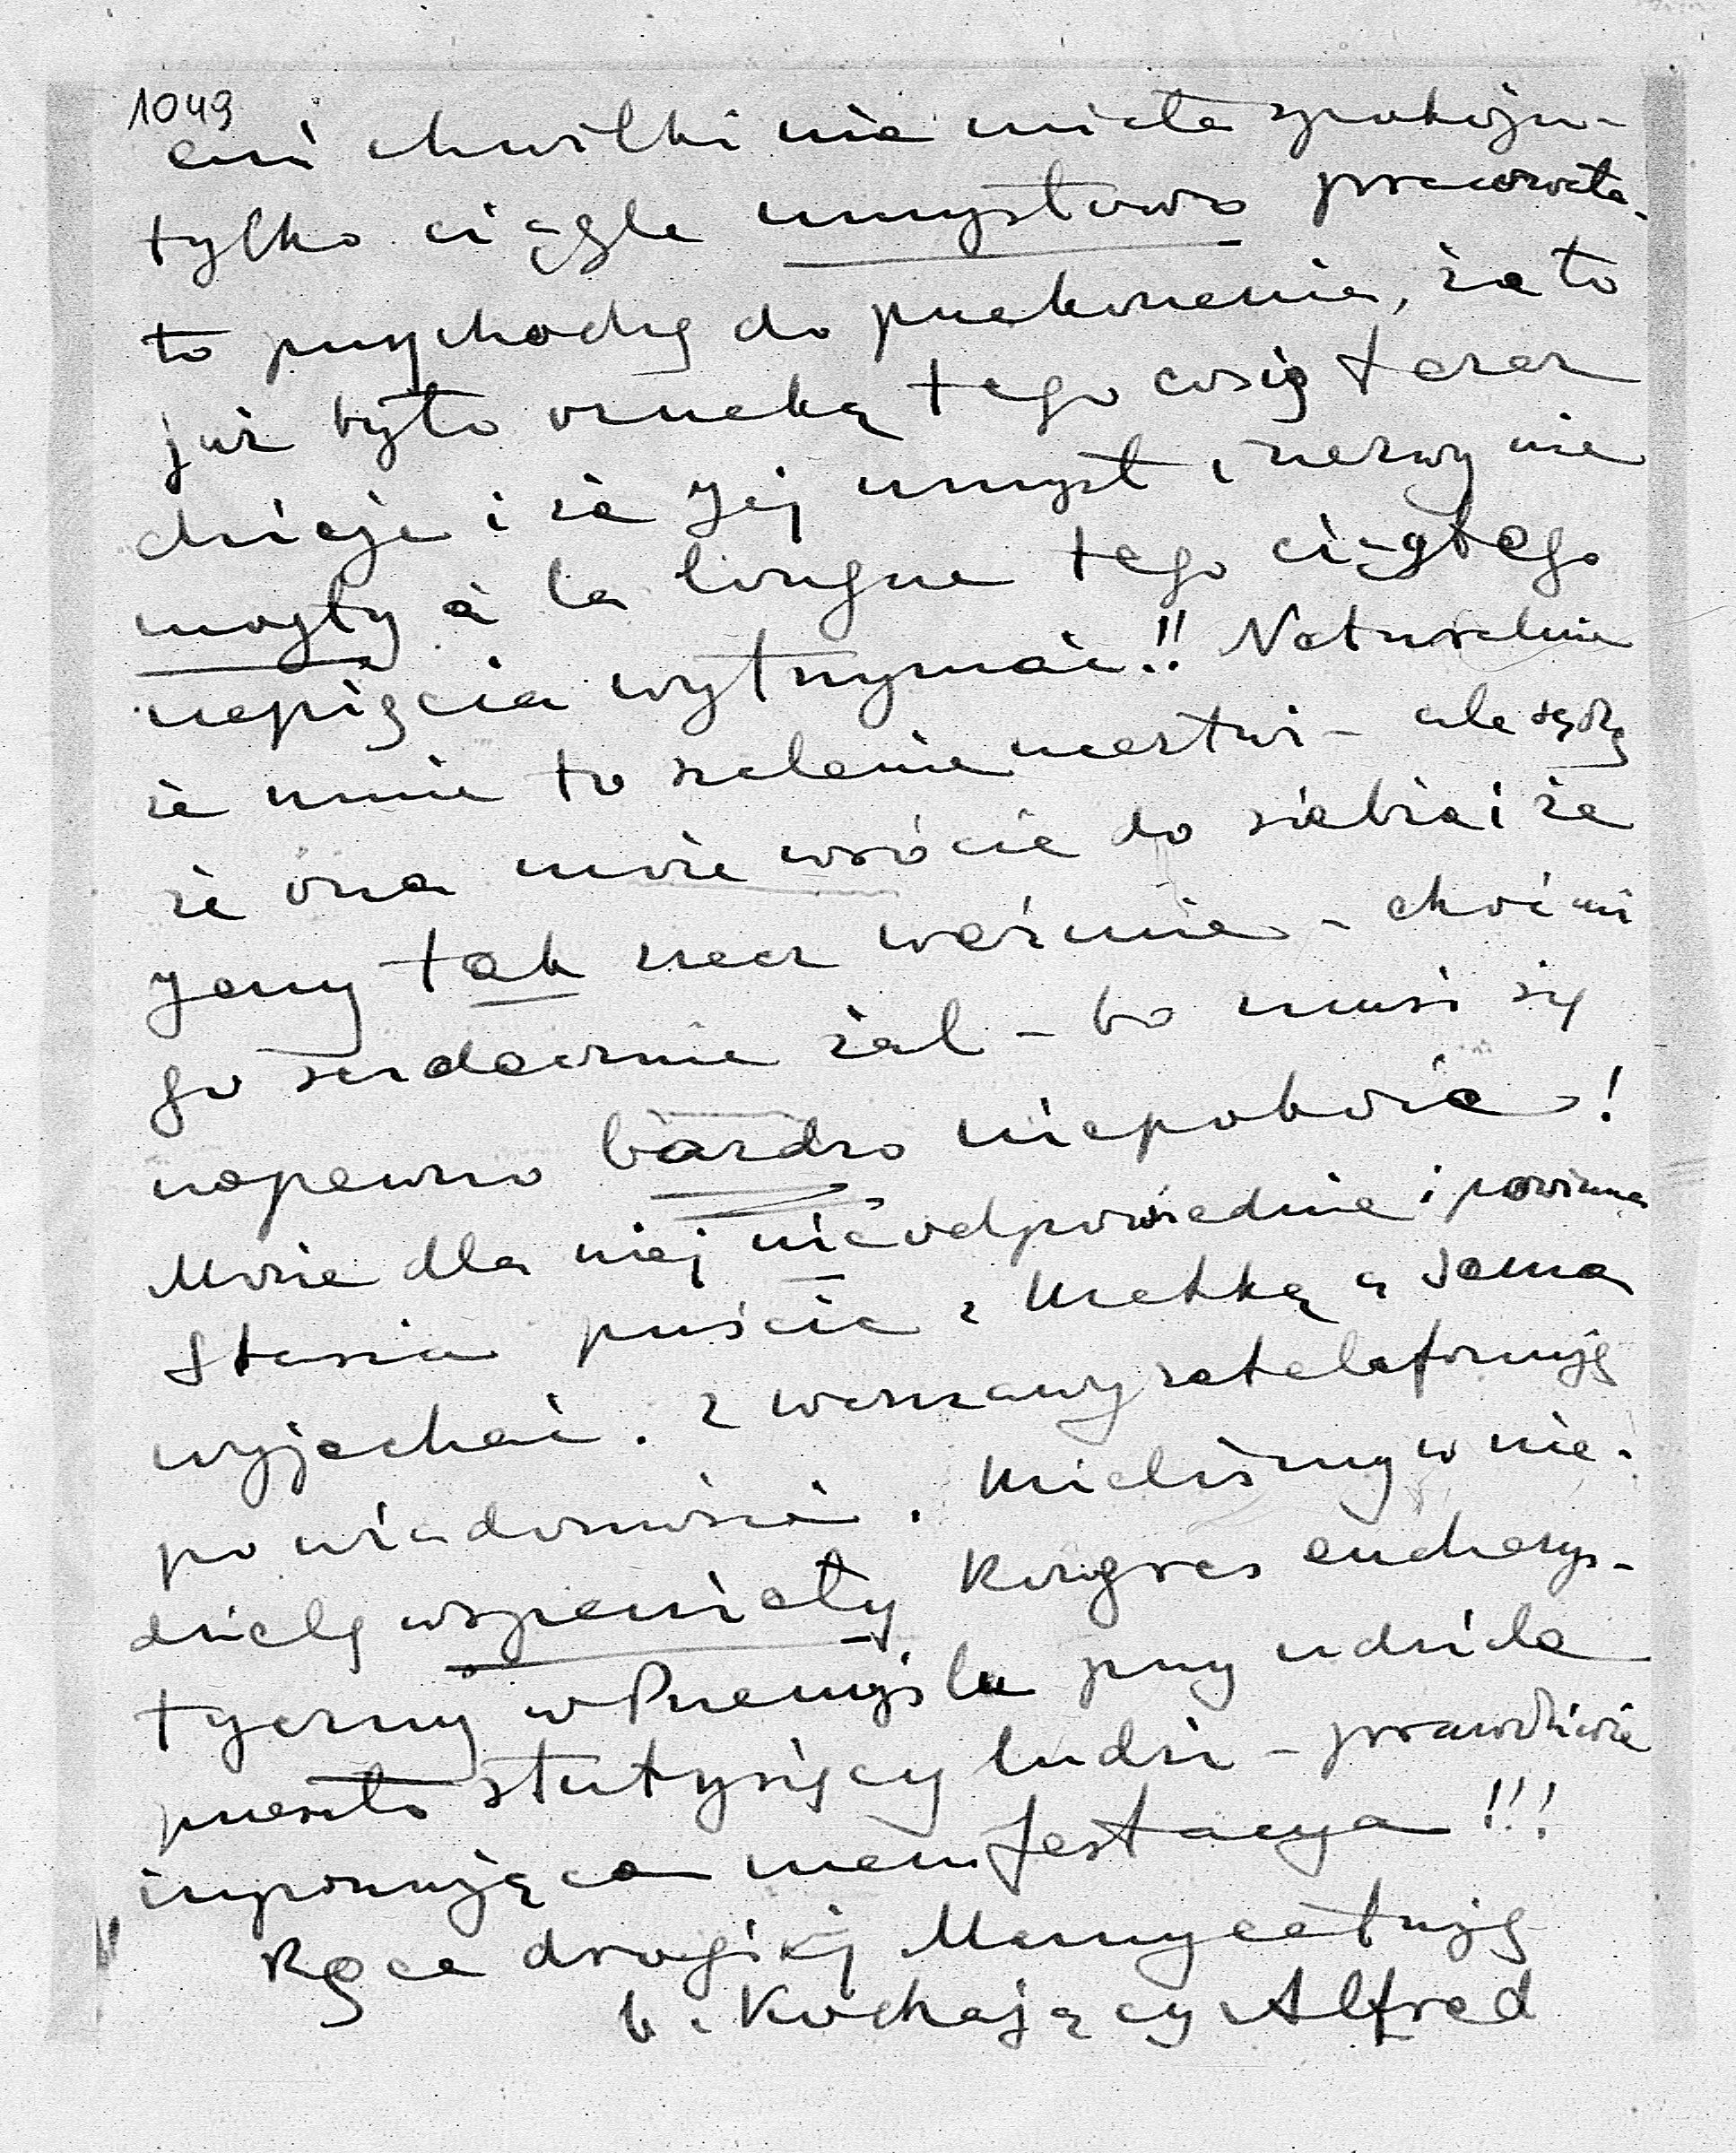 1049
ani chwilki nie miała spokoju -
tylko ciągle umysłowo pracowała -
to przychodzę do przekonania, że to
już było oznaką tego co się teraz
dzieje i że Jej umysł i nerwy nie
mogły à la longue tego ciągłego
napięcia wytrzymać!! Naturalnie
że mnie to szalenie martwi - ale sądzę
że ona może wrócić do siebie i że
Jemy tak rzecz weźmie - choć mi
go serdecznie żal - bo musi się
napewno bardzo niepokoić!
Może dla niej nieodpowiednie i powinna
Stasia puścić z Matką a sama
wyjechać. Z Warszawy zatelefonuję
po wiadomości. Mieliśmy w nie-
dzielę wspaniały Kongres eucharys-
tyczny w Przemyślu przy udziale
przeszło stutysięcy ludzi - prawdziwie
imponująca manifestacya!!!
Ręce drogiéj Mamy całuję
b. Kochający Alfred